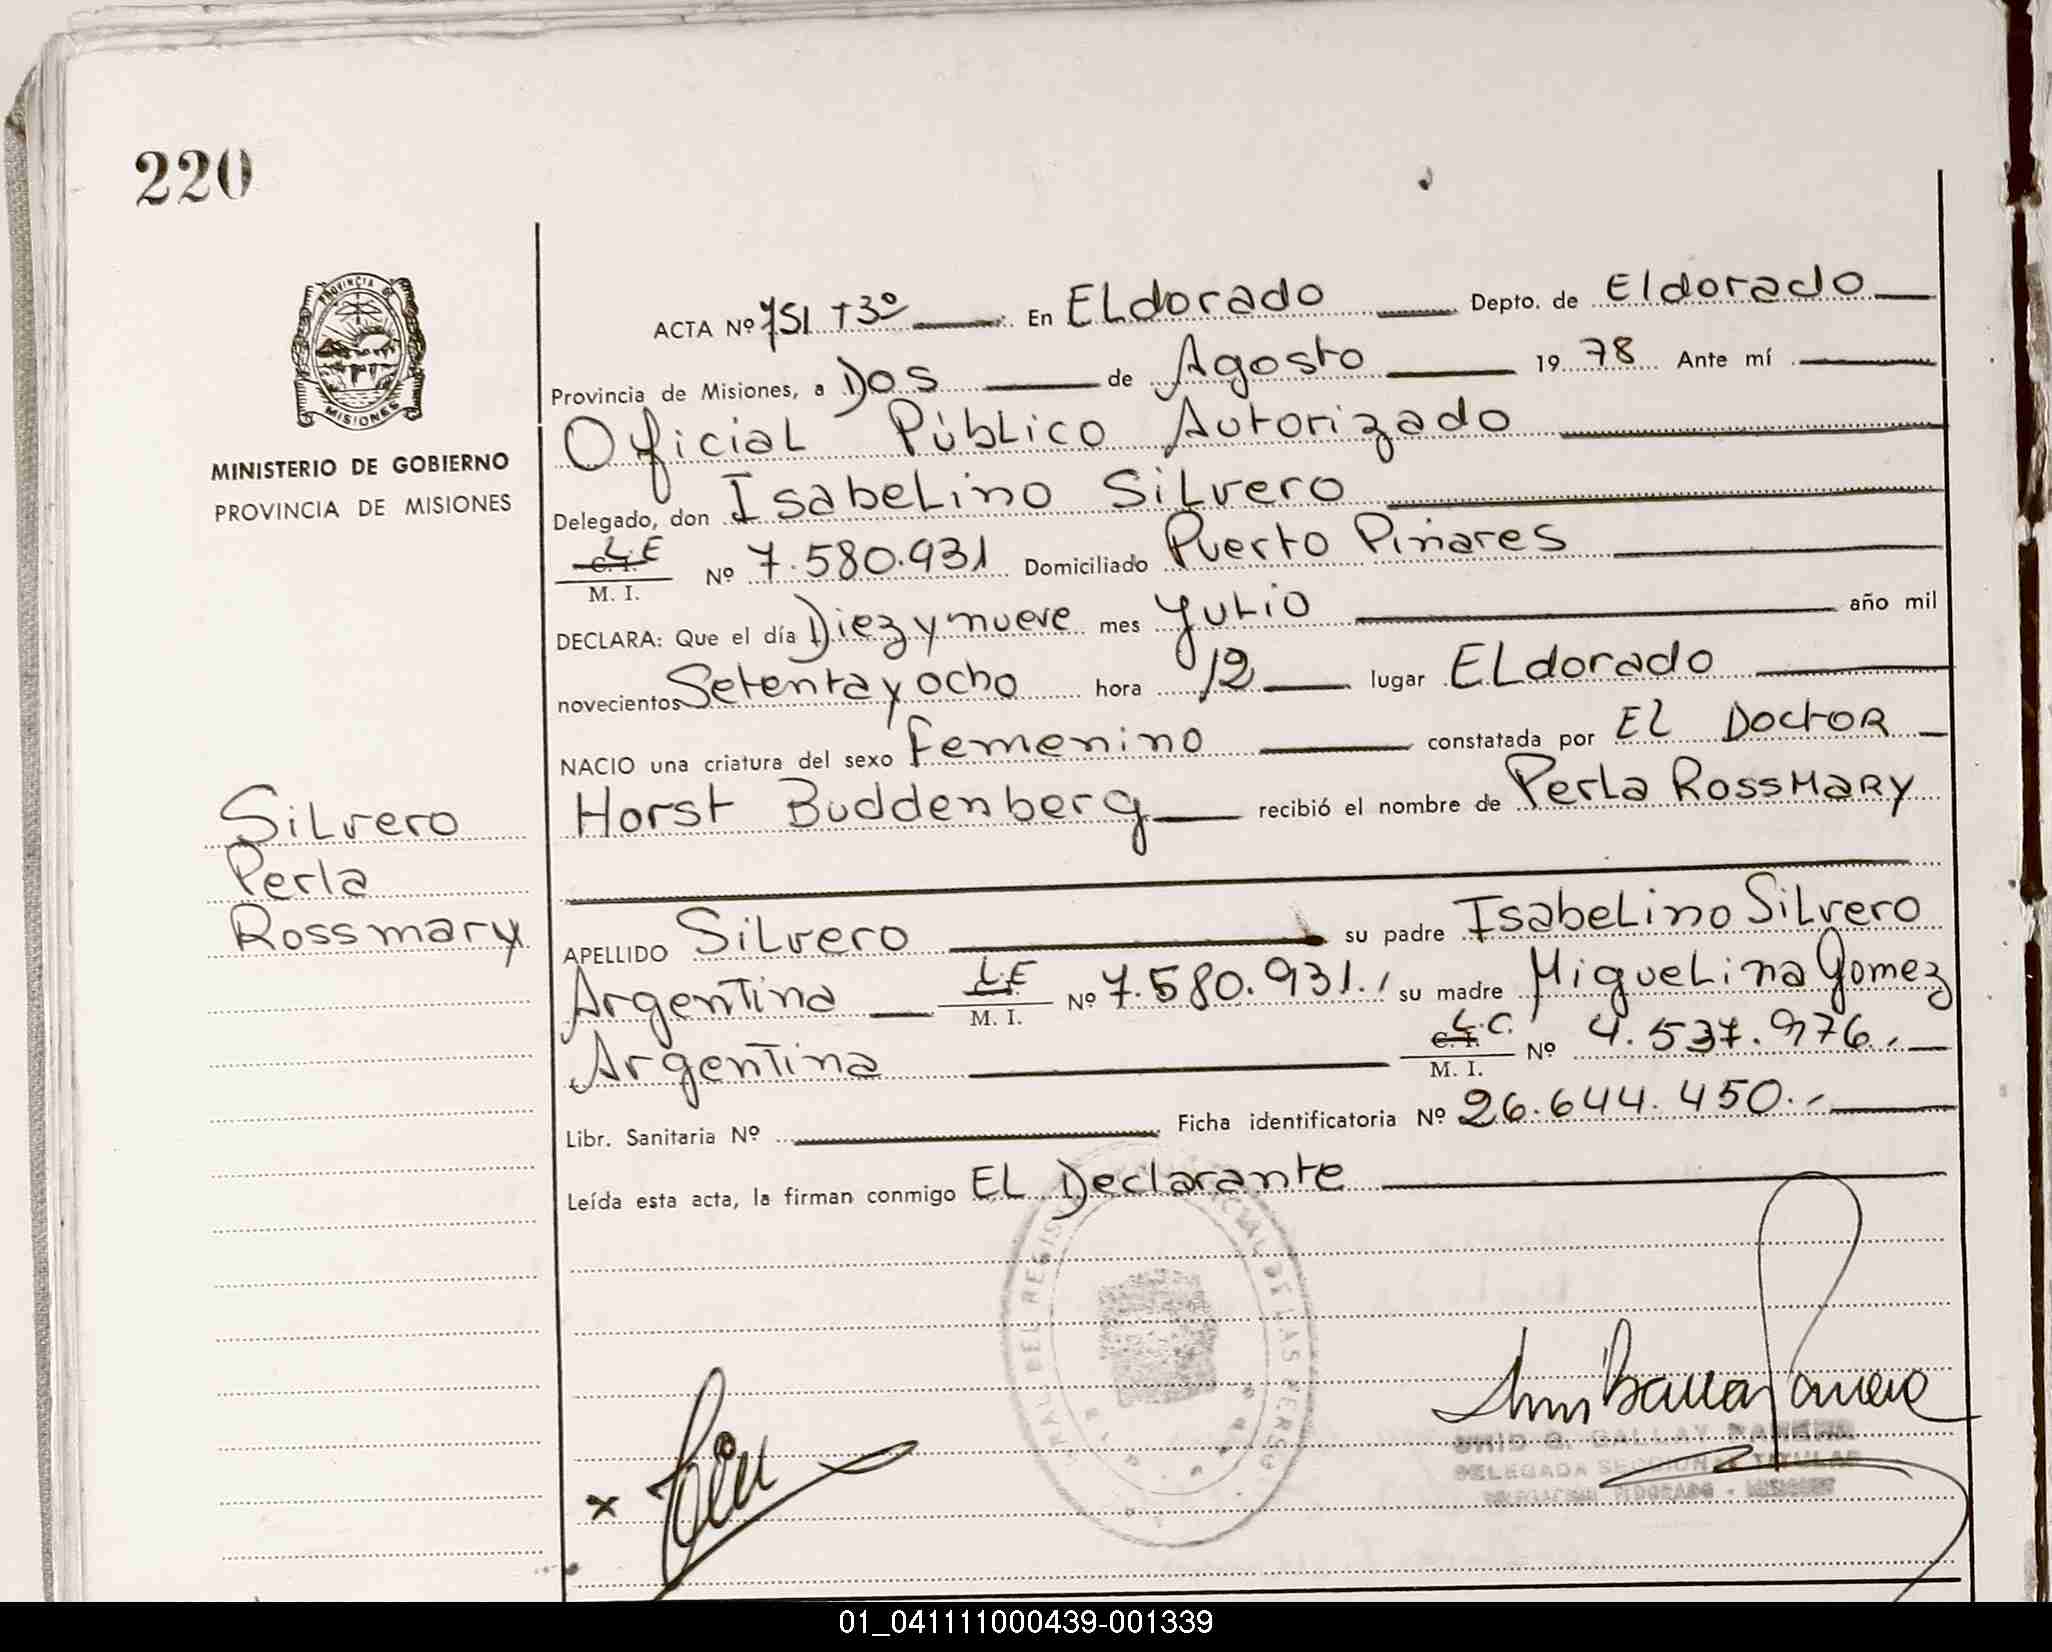 220
PROVINCIA DE
MISIONES
MINISTERIO DE GOBIERNO
PROVINCIA DE MISIONES
ACTA Nº 751 T3º En ELdorado Depto. de Eldorado
Provincia de Misiones, a Dos de Agosto 19 78 Ante mí
Oficial Público Autorizado
Delegado, don Isabelino Silvero
C. I. L.E
M. I. Nº 7.580.931 Domiciliado Puerto Pinares
DECLARA: Que el día Diez y nueve mes Julio año mil
novecientos Setenta y ocho hora 12 lugar ELdorado
NACIO una criatura del sexo Femenino constatada por El Doctor
Horst Buddenberg recibió el nombre de Perla Rossmary
Silvero
Perla
Rossmary
APELLIDO Silvero su padre Isabelino Silvero
Argentina L.E M. I. Nº 7.580.931., su madre Miguelina Gomez
Argentina C. I. L.C. M. I. Nº 4.537.976.
Libr. Sanitaria Nº Ficha identificatoria Nº 26.644.450.-
Leída esta acta, la firman conmigo EL Declarante
DEL REGIS CIAL DE LAS PERSO
x
DELEGADA SECCIONAL TITULAR
01_041111000439-001339